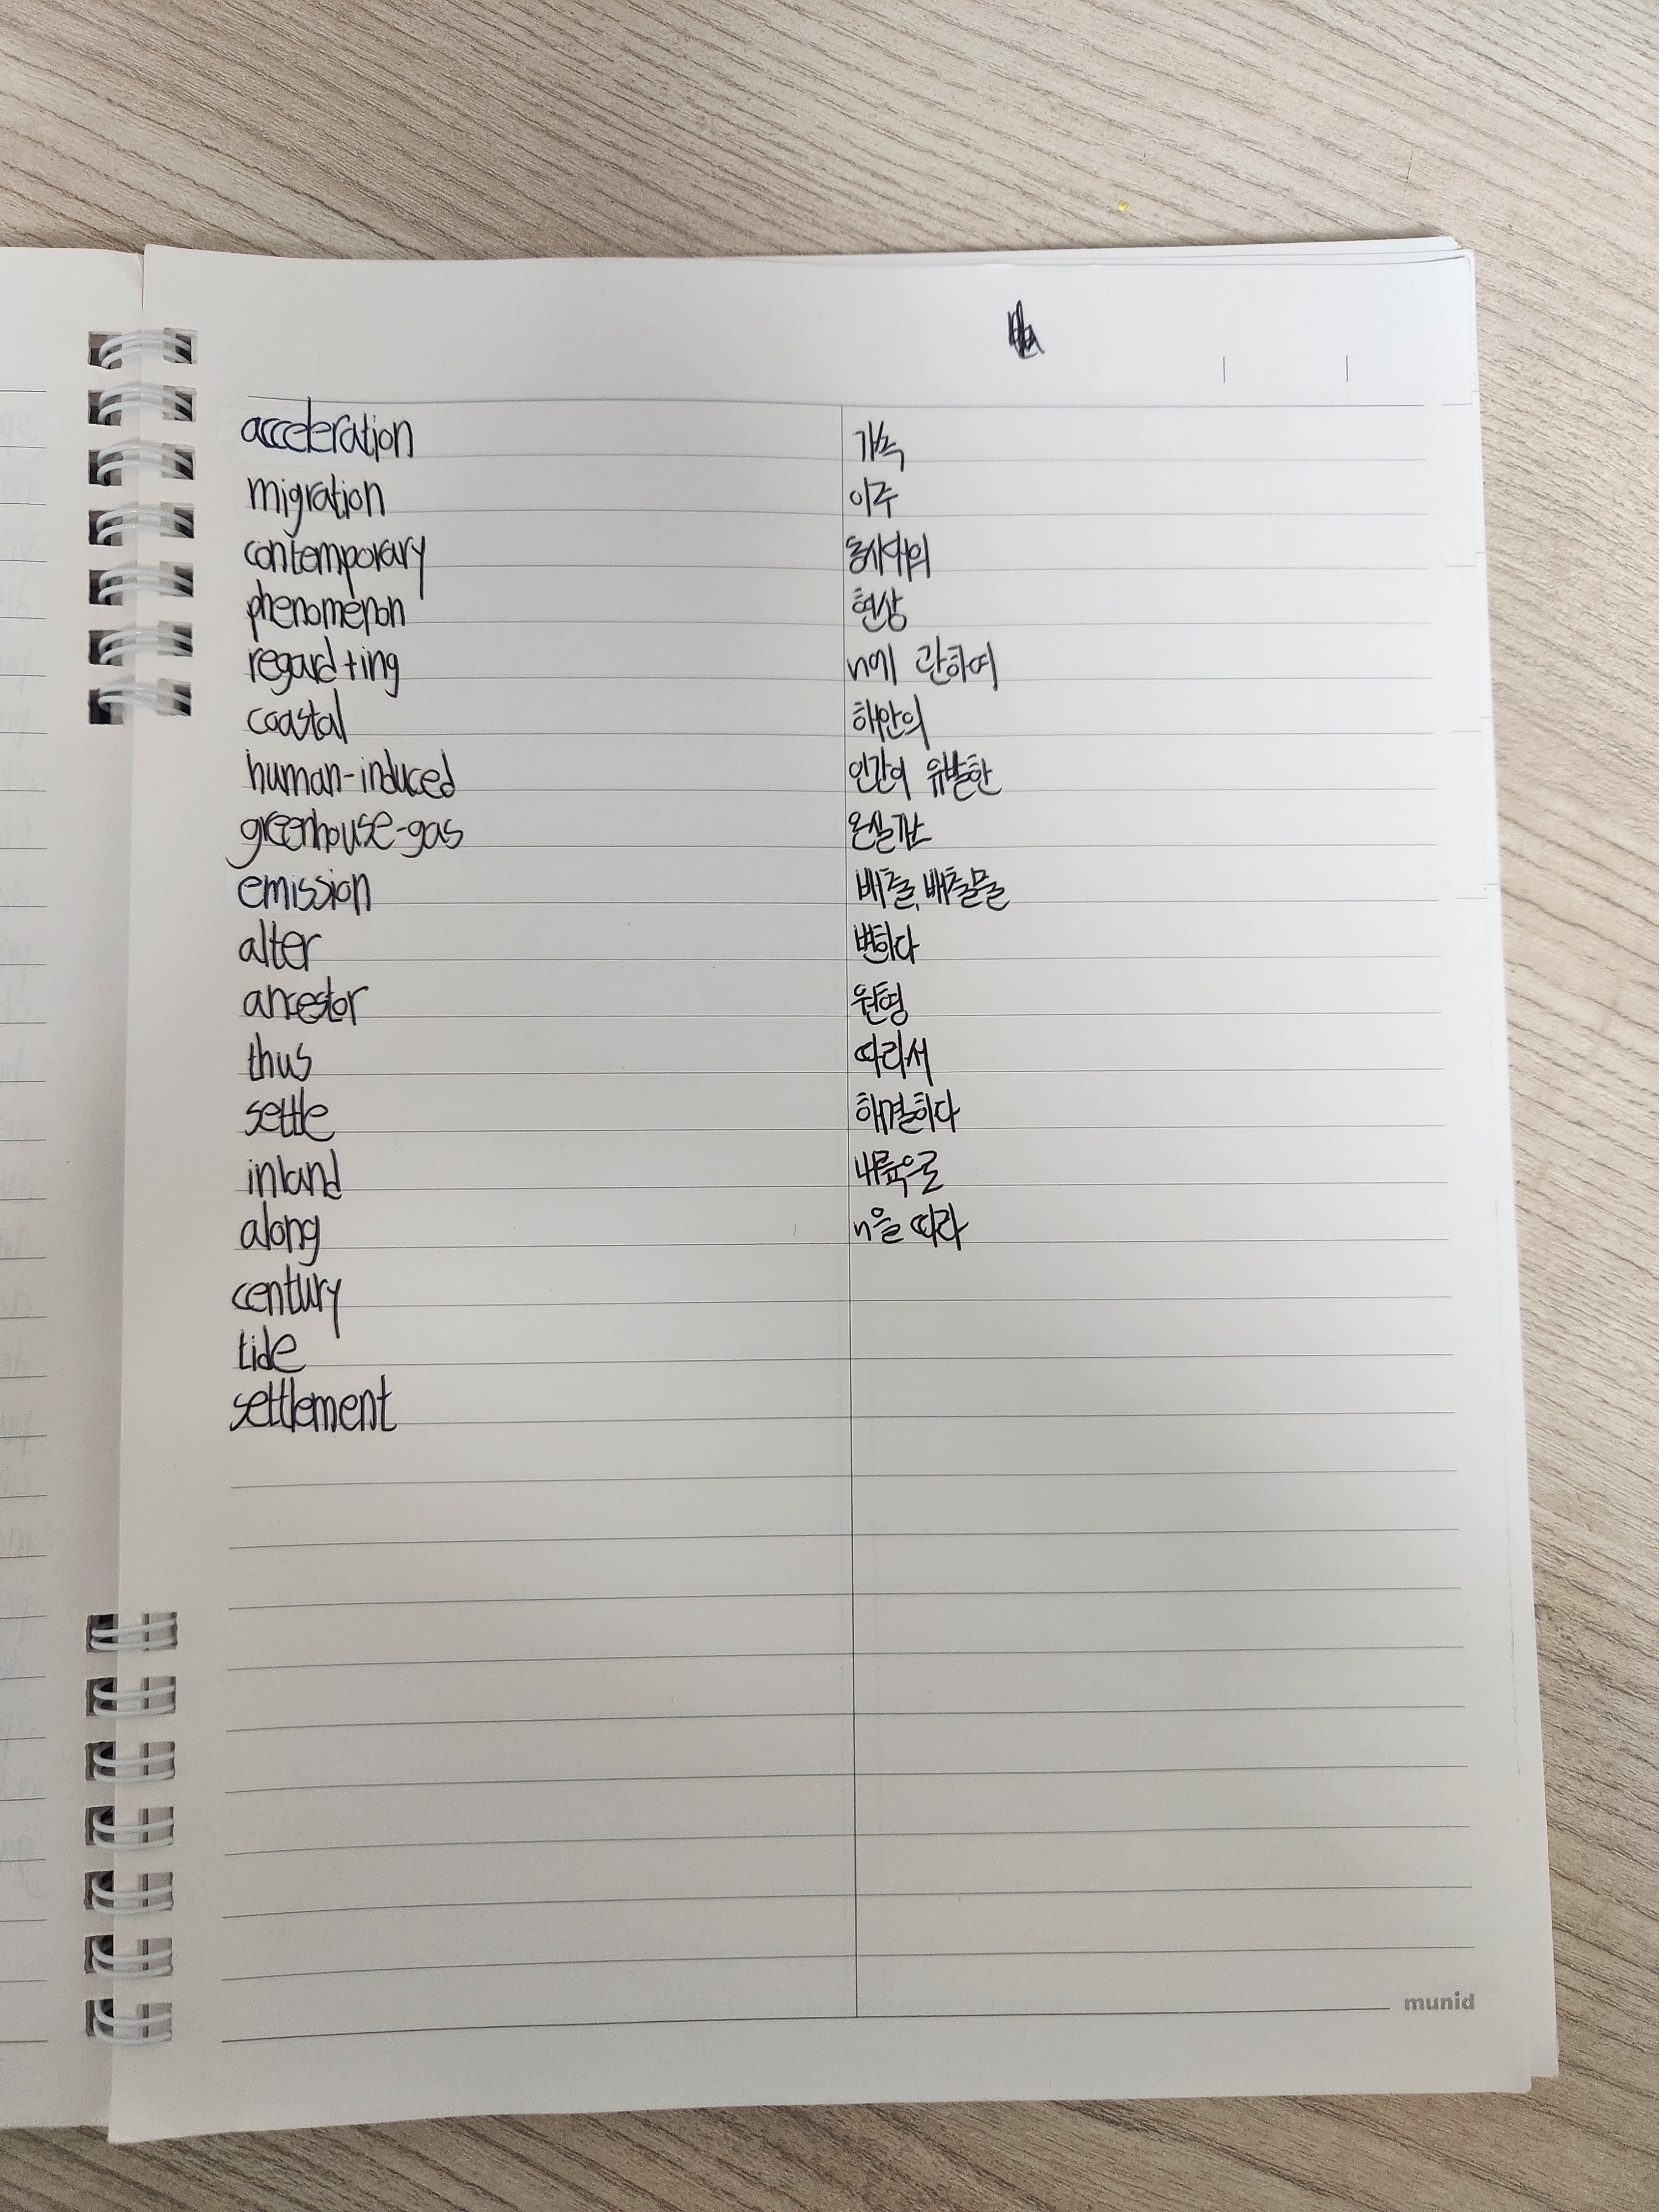 acceleration 가속
migration 이주
contemporary 동시대의
phenomenon 현상
regard+ing n에 관하여
coastal 해안의
human-induced 인간이 유발한
greenhouse-gas 온실가스
emission 배출, 배출물
alter 변하다
ancestor 원형
thus 따라서
settle 해결하다
inland 내륙으로
along n을 따라
century
tide
settlement
munid